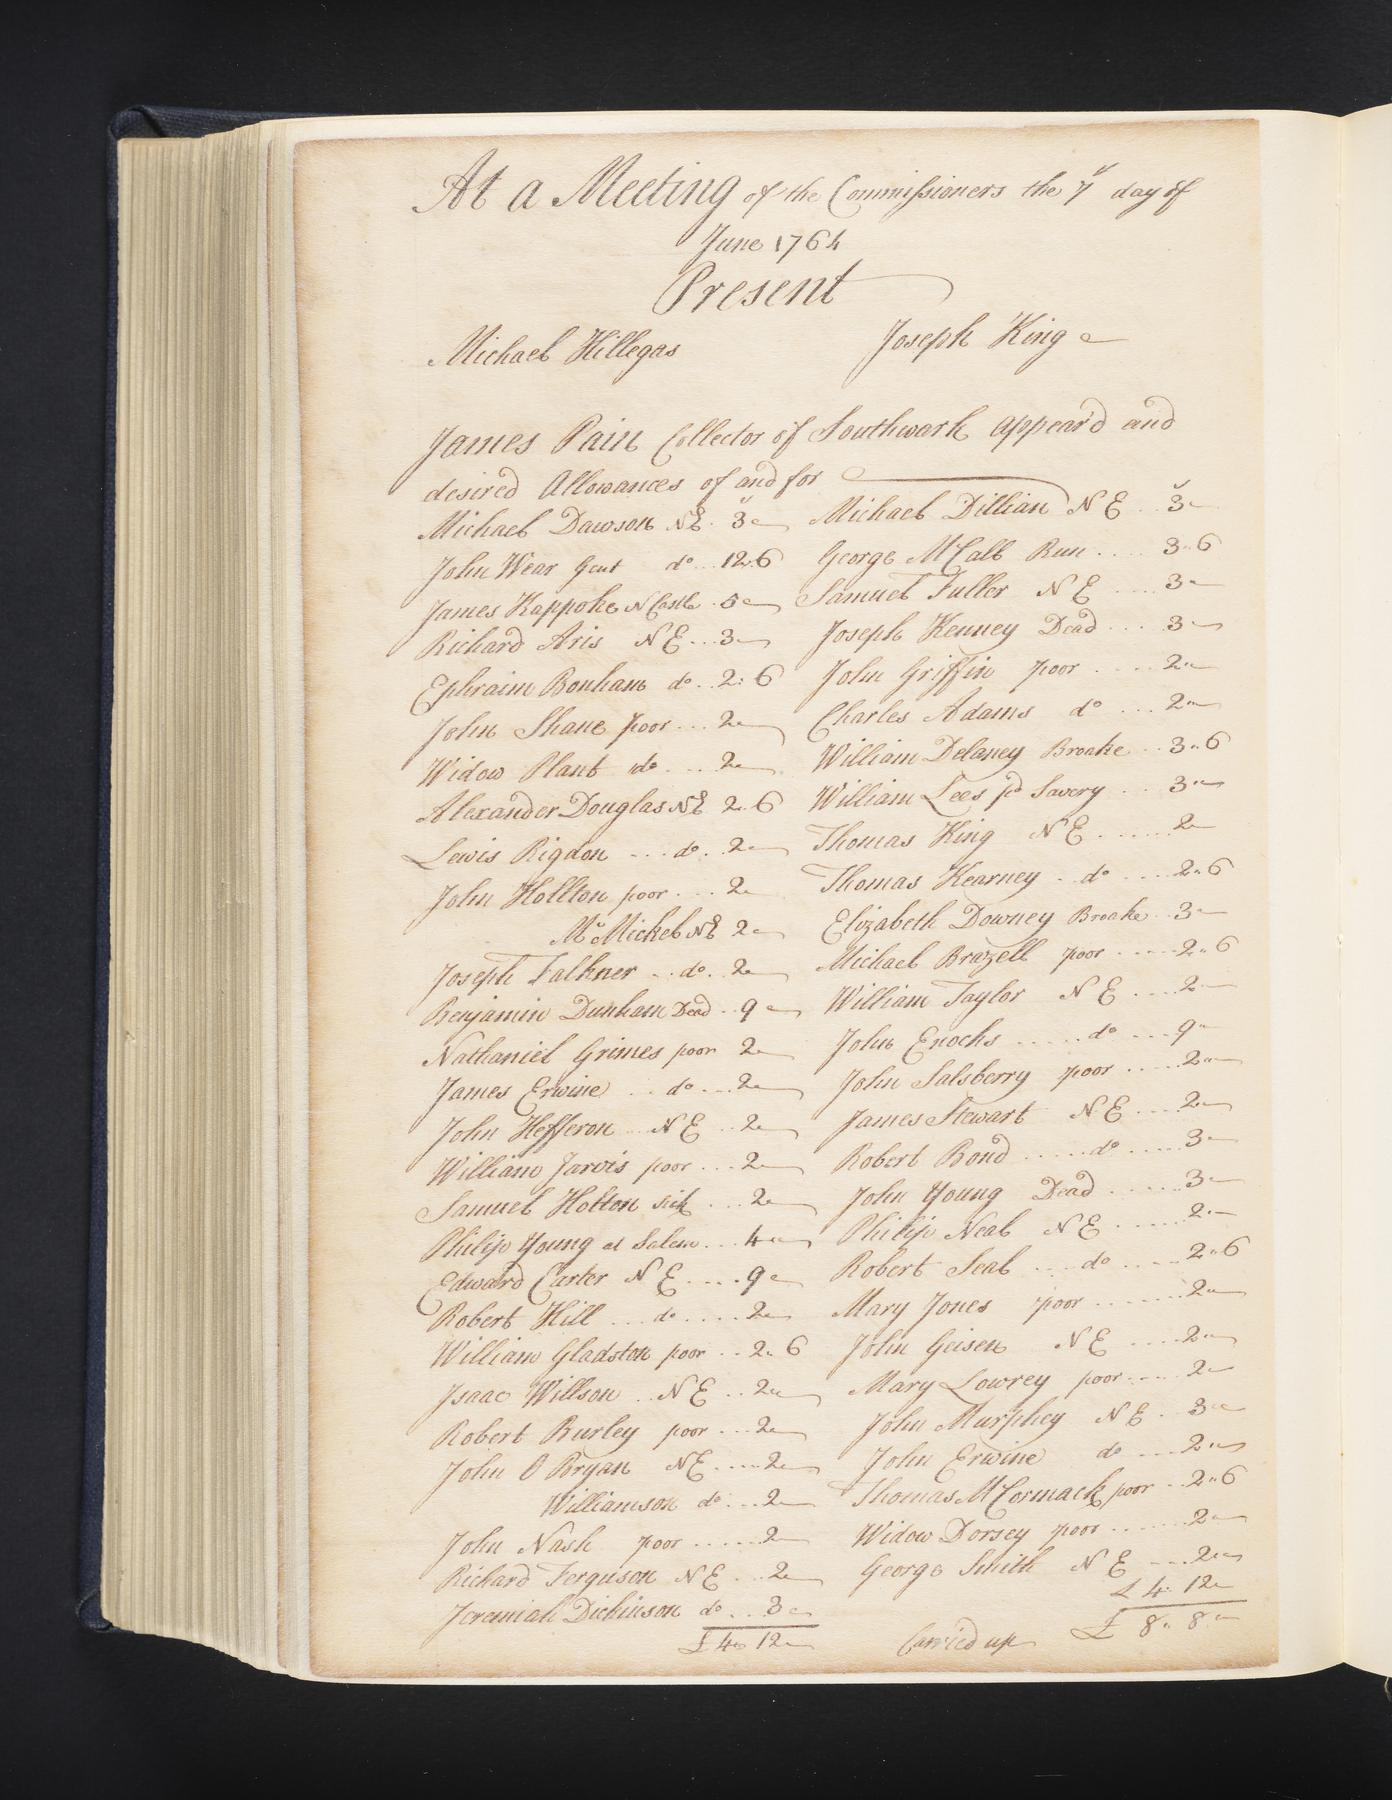 At a Meeting of the Commissioners the 7th day of
June 1764
Present
Michael Hillegas Joseph King
James Pain Collector of Southwark appear'd and
desired Allowances of and for
Michael Dawson NE 3 -
John Wear Gent do 12..6
James Kappoke N Castle 5 -
Richard Aris NE 3 -
Ephraim Bonham do 2..6
John Shane poor 2 -
Widow Plant do 2 -
Alexander Douglas NE 2..6
Lewis Rigdon do 2 -
John Hollton poor 2 -
McMichel NE 2 -
Joseph Falkner do 2 -
Benjamin Dunham Dead 9 -
Nathaniel Grimes poor 2 -
James Erwine do 2 -
John Hefferon NE 2 -
William Jarvis poor 2 -
Samuel Holton sick 2 -
Philip Young at Salem 4 -
Edward Carter NE 9 -
Robert Hill do 2 -
William Gladston poor 2..6
Isaac Willson NE 2 -
Robert Burley poor 2 -
John O Bryan NE 2 -
Williamson do 2 -
John Nash poor 2 -
Richard Ferguson NE 2 -
Jeremiah Dickinson do 3 -
£4..12 -
Michael Dillian NE 3 -
George McCall Run 3..6
Samuel Fuller NE 3 -
Joseph Kenney Dead 3 -
John Griffin poor 2 -
Charles Adams do 2 -
William Delaney Broake 3..6
William Lees pd Savery 3 -
Thomas King NE 2 -
Thomas Kearney do 2..6
Elizabeth Downey Broake 3 -
Michael Brazell poor 2..6
William Taylor NE 2 -
John Enochs do 9 -
John Salsberry poor 2 -
James Stewart NE 2 -
Robert Bond do 3 -
John Young Dead 3 -
Philip Neal NE 2 -
Robert Seal do 2..6
Mary Jones poor 2 -
John Geisen NE 2 -
Mary Lowrey poor 2 -
John Murphey NE 3 -
John Erwine do 2 -
Thomas McCormack poor 2..6
Widow Dorsey poor 2 -
George Smith NE 2 -
£4..12 -
Carried up £8..8 -